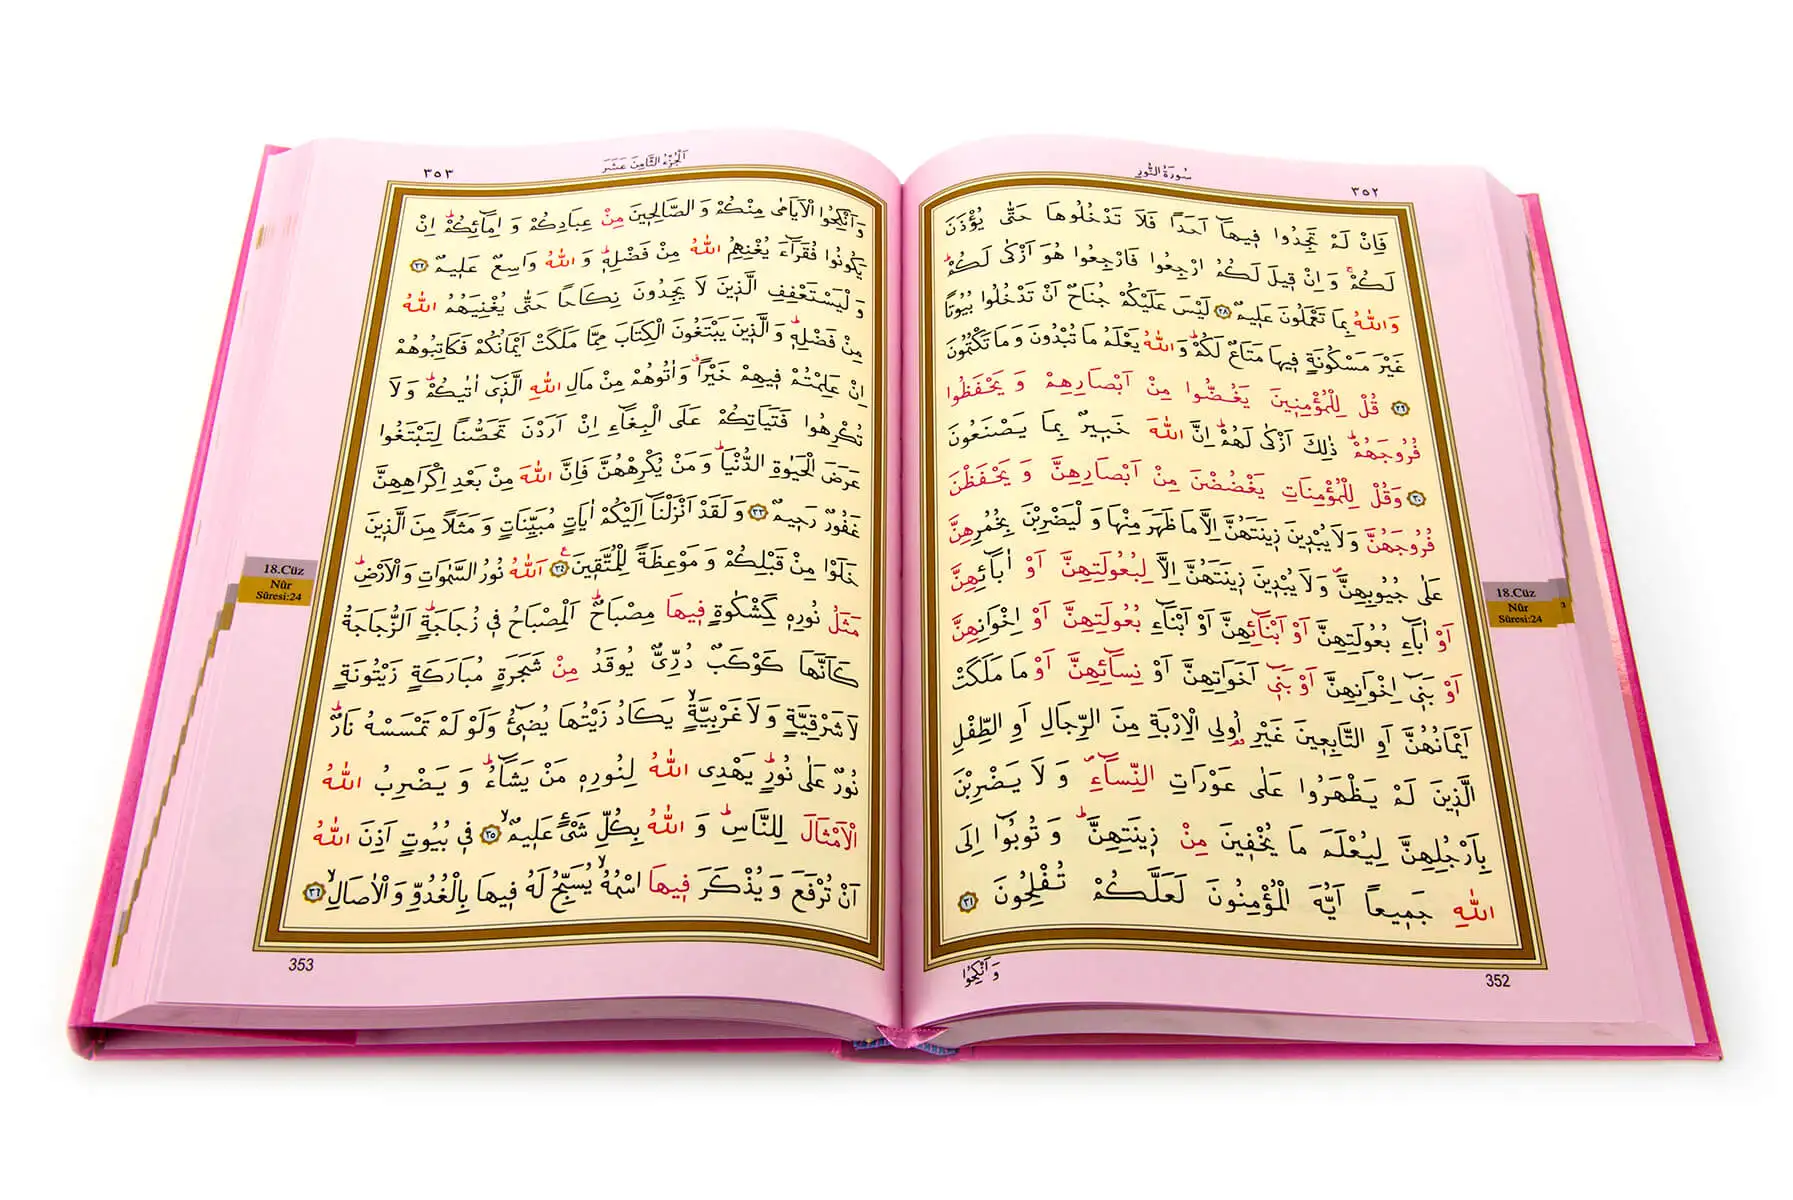 سُورَةُ النُّورِ
٣٥٢
فَاِنْ لَمْ تَجِدُوا فٖيهَٓا اَحَدًا فَلَا تَدْخُلُوهَا حَتّٰى يُؤْذَنَ
لَكُمْۚ وَاِنْ قٖيلَ لَكُمُ ارْجِعُوا فَارْجِعُوا هُوَ اَزْكٰى لَكُمْؕ
وَاللّٰهُ بِمَا تَعْمَلُونَ عَلٖيمٌ ﴿٢٨﴾ لَيْسَ عَلَيْكُمْ جُنَاحٌ اَنْ تَدْخُلُوا بُيُوتًا
غَيْرَ مَسْكُونَةٍ فٖيهَا مَتَاعٌ لَكُمْؕ وَاللّٰهُ يَعْلَمُ مَا تُبْدُونَ وَمَا تَكْتُمُونَ
﴿٢٩﴾ قُلْ لِلْمُؤْمِنٖينَ يَغُضُّوا مِنْ اَبْصَارِهِمْ وَيَحْفَظُوا
فُرُوجَهُمْؕ ذٰلِكَ اَزْكٰى لَهُمْؕ اِنَّ اللّٰهَ خَبٖيرٌ بِمَا يَصْنَعُونَ
﴿٣٠﴾ وَقُلْ لِلْمُؤْمِنَاتِ يَغْضُضْنَ مِنْ اَبْصَارِهِنَّ وَيَحْفَظْنَ
فُرُوجَهُنَّ وَلَا يُبْدٖينَ زٖينَتَهُنَّ اِلَّا مَا ظَهَرَ مِنْهَا وَلْيَضْرِبْنَ بِخُمُرِهِنَّ
عَلٰى جُيُوبِهِنَّࣕ وَلَا يُبْدٖينَ زٖينَتَهُنَّ اِلَّا لِبُعُولَتِهِنَّ اَوْ اٰبَٓائِهِنَّ
اَوْ اٰبَٓاءِ بُعُولَتِهِنَّ اَوْ اَبْنَٓائِهِنَّ اَوْ اَبْنَٓاءِ بُعُولَتِهِنَّ اَوْ اِخْوَانِهِنَّ
اَوْ بَنٖٓى اِخْوَانِهِنَّ اَوْ بَنٖٓى اَخَوَاتِهِنَّ اَوْ نِسَٓائِهِنَّ اَوْ مَا مَلَكَتْ
اَيْمَانُهُنَّ اَوِ التَّابِعٖينَ غَيْرِ اُو۬لِى الْاِرْبَةِ مِنَ الرِّجَالِ اَوِ الطِّفْلِ
الَّذٖينَ لَمْ يَظْهَرُوا عَلٰى عَوْرَاتِ النِّسَٓاءِࣕ وَلَا يَضْرِبْنَ
بِاَرْجُلِهِنَّ لِيُعْلَمَ مَا يُخْفٖينَ مِنْ زٖينَتِهِنَّؕ وَتُوبُٓوا اِلَى
اللّٰهِ جَمٖيعًا اَيُّهَ الْمُؤْمِنُونَ لَعَلَّكُمْ تُفْلِحُونَ ﴿٣١﴾
وَاَنْكِحُوا
352
18.Cüz
Nûr
Sûresi:24
اَلْجُزْءُ الثَّامِنَ عَشَرَ
٣٥٣
وَاَنْكِحُوا الْاَيَامٰى مِنْكُمْ وَالصَّالِحٖينَ مِنْ عِبَادِكُمْ وَاِمَٓائِكُمْؕ اِنْ
يَكُونُوا فُقَرَٓاءَ يُغْنِهِمُ اللّٰهُ مِنْ فَضْلِهٖؕ وَاللّٰهُ وَاسِعٌ عَلٖيمٌ ﴿٣٢﴾
وَلْيَسْتَعْفِفِ الَّذٖينَ لَا يَجِدُونَ نِكَاحًا حَتّٰى يُغْنِيَهُمُ اللّٰهُ
مِنْ فَضْلِهٖؕ وَالَّذٖينَ يَبْتَغُونَ الْكِتَابَ مِمَّا مَلَكَتْ اَيْمَانُكُمْ فَكَاتِبُوهُمْ
اِنْ عَلِمْتُمْ فٖيهِمْ خَيْرًاۗ وَاٰتُوهُمْ مِنْ مَالِ اللّٰهِ الَّذٖٓى اٰتٰيكُمْؕ وَلَا
تُكْرِهُوا فَتَيَاتِكُمْ عَلَى الْبِغَٓاءِ اِنْ اَرَدْنَ تَحَصُّنًا لِتَبْتَغُوا
عَرَضَ الْحَيٰوةِ الدُّنْيَاؕ وَمَنْ يُكْرِهْهُنَّ فَاِنَّ اللّٰهَ مِنْ بَعْدِ اِكْرَاهِهِنَّ
غَفُورٌ رَحٖيمٌ ﴿٣٣﴾ وَلَقَدْ اَنْزَلْنَٓا اِلَيْكُمْ اٰيَاتٍ مُبَيِّنَاتٍ وَمَثَلًا مِنَ الَّذٖينَ
خَلَوْا مِنْ قَبْلِكُمْ وَمَوْعِظَةً لِلْمُتَّقٖينَ ﴿٣٤﴾ اَللّٰهُ نُورُ السَّمٰوَاتِ وَالْاَرْضِؕ
مَثَلُ نُورِهٖ كَمِشْكٰوةٍ فٖيهَا مِصْبَاحٌؕ اَلْمِصْبَاحُ فٖى زُجَاجَةٍؕ اَلزُّجَاجَةُ
كَاَنَّهَا كَوْكَبٌ دُرِّىٌّ يُوقَدُ مِنْ شَجَرَةٍ مُبَارَكَةٍ زَيْتُونَةٍ
لَا شَرْقِيَّةٍ وَلَا غَرْبِيَّةٍۙ يَكَادُ زَيْتُهَا يُضٖٓىءُ وَلَوْ لَمْ تَمْسَسْهُ نَارٌؕ
نُورٌ عَلٰى نُورٍؕ يَهْدِى اللّٰهُ لِنُورِهٖ مَنْ يَشَٓاءُؕ وَيَضْرِبُ اللّٰهُ
الْاَمْثَالَ لِلنَّاسِؕ وَاللّٰهُ بِكُلِّ شَىْءٍ عَلٖيمٌۙ ﴿٣٥﴾ فٖى بُيُوتٍ اَذِنَ اللّٰهُ
اَنْ تُرْفَعَ وَيُذْكَرَ فٖيهَا اسْمُهُۙ يُسَبِّحُ لَهُ فٖيهَا بِالْغُدُوِّ وَالْاٰصَالِۙ ﴿٣٦﴾
353
18.Cüz
Nûr
Sûresi:24